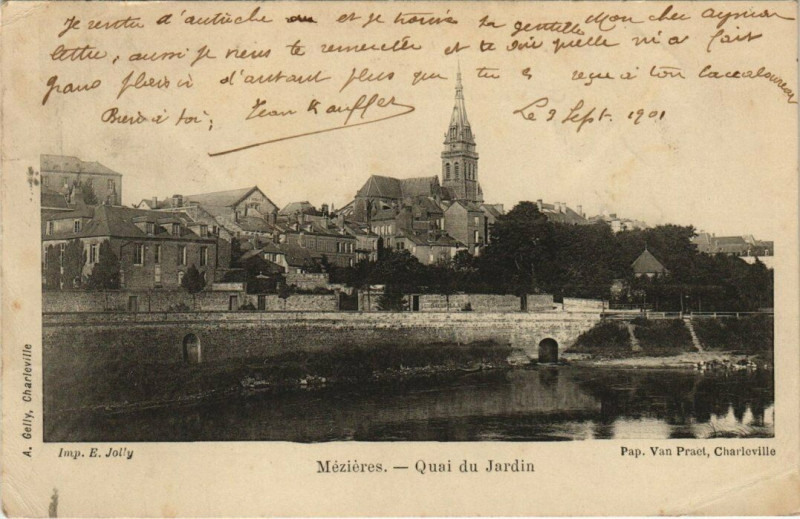 Mon cher Aymon
Je rentre d'autriche et je trouve ta gentille
lettre, aussi je viens te remercier et te dire qu'elle m'a fait
grand plaisir d'autant plus que tu es reçu à ton baccalauréat
Bien à toi; Jean Kauffer Le 3 Sept. 1901
A. Gelly, Charleville
Imp. E. Jolly
Pap. Van Praet, Charleville
Mézières. — Quai du Jardin